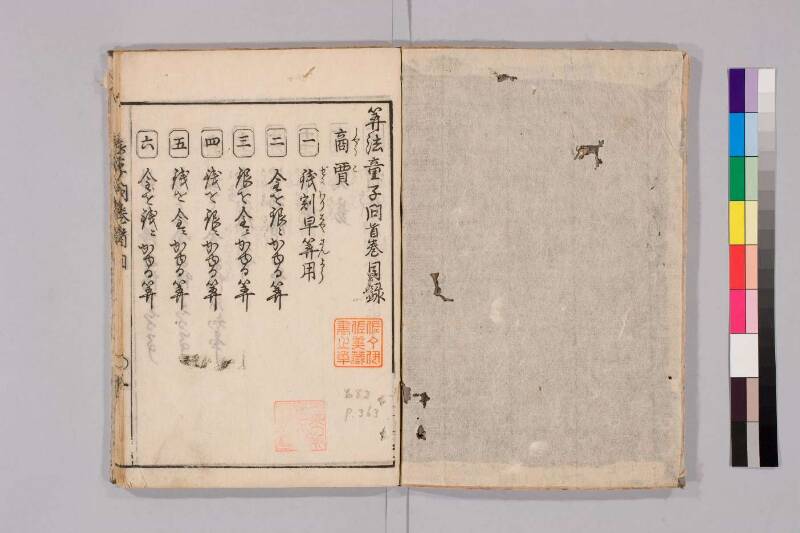 算法童子問首巻目録
商賈
一 銭割早算用
二 金を銀にかゆる算
三 銀を金にかゆる算
四 銭を銀にかゆる算
五 銭を金にかゆる算
六 金を銭にかゆる算
282
P.363